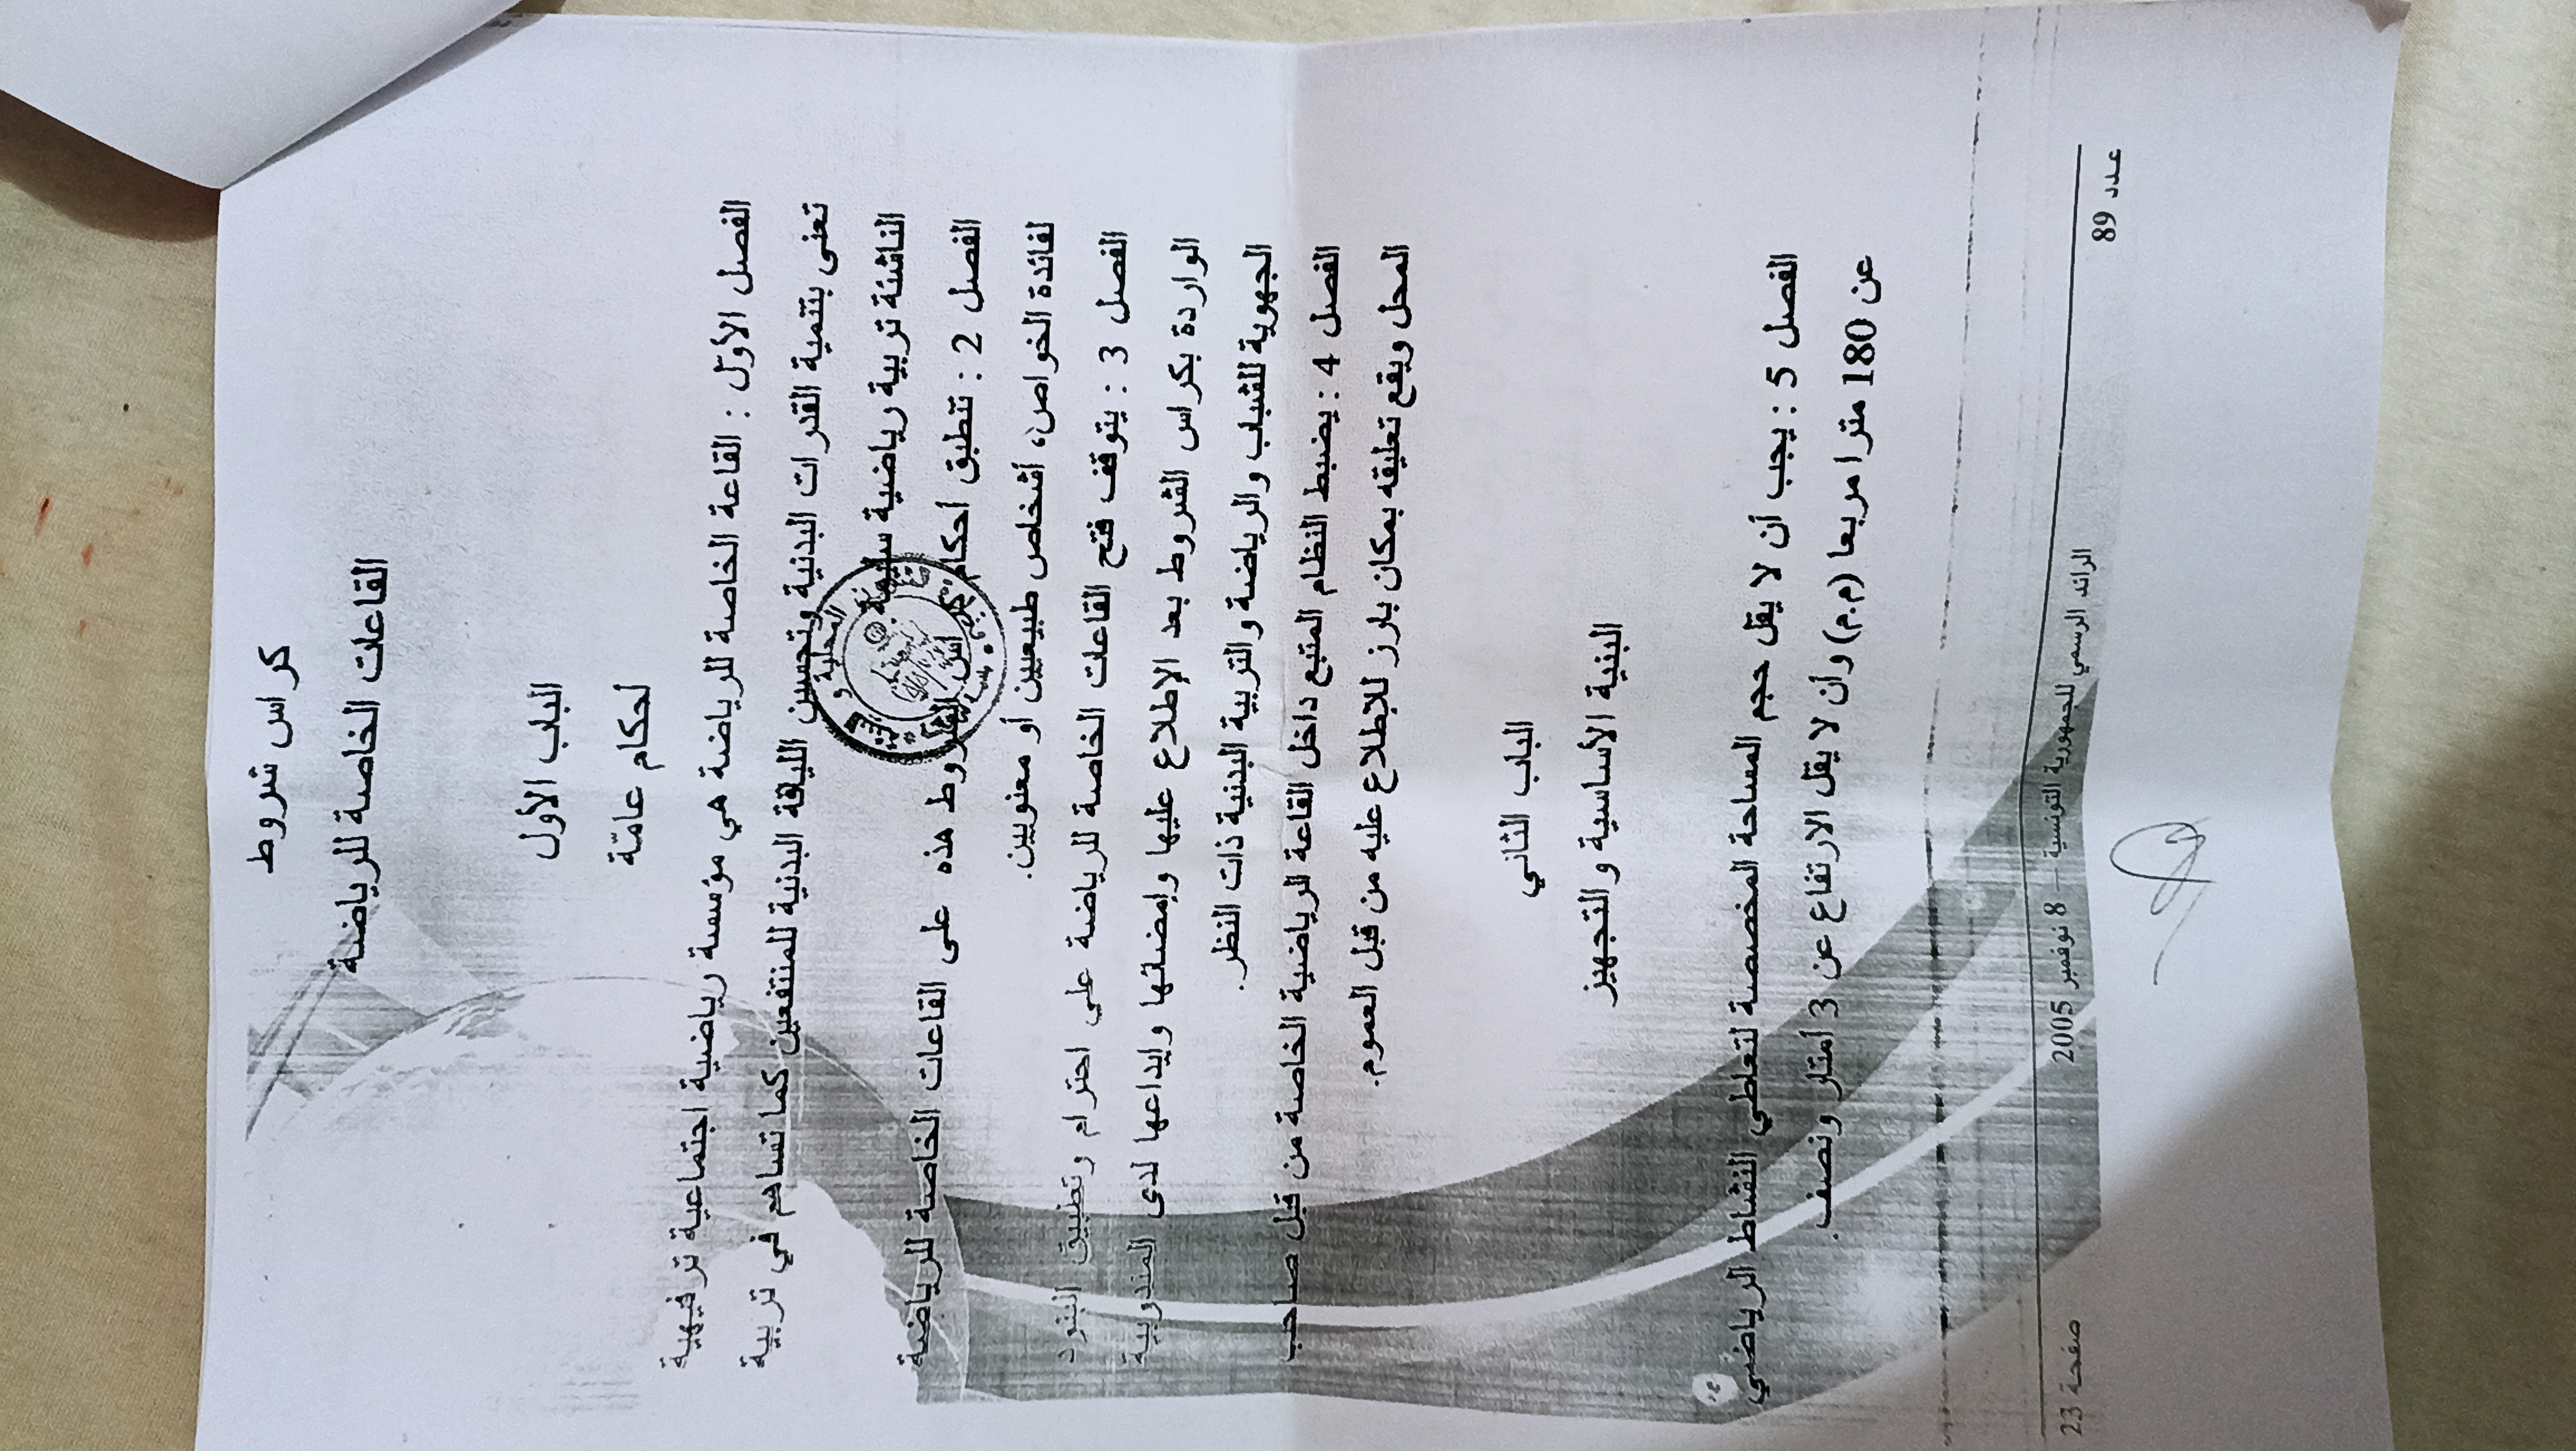 كراس شروط
القاعات الخاصة للرياضة
الباب الأول
أحكام عامّة
الفصل الأوّل : القاعة الخاصة للرياضة هي مؤسسة رياضية اجتماعية ترفيهية
تعنى بتنمية القدرات البدنية وتحسين اللياقة البدنية للمنتفعين كما تساهم في تربية
الناشئة تربية رياضية سليمة
الفصل 2 : تنطبق احكام كراس الشروط هذه على القاعات الخاصة للرياضة
لفائدة الخواص، أشخاص طبيعيين أو معنويين.
الفصل 3 : يتوقف فتح القاعات الخاصة للرياضة على احترام وتطبيق البنود
الواردة بكراس الشروط بعد الإطلاع عليها وإمضائها وإيداعها لدى المندوبية
الجهوية للشباب والرياضة والتربية البدنية ذات النظر.
الفصل 4 : يضبط النظام المتبع داخل القاعة الرياضية الخاصة من قبل صاحب
المحل ويقع تعليقه بمكان بارز للإطلاع عليه من قبل العموم.
الباب الثاني
البنية الأساسية و التجهيز
الفصل 5 : يجب أن لا يقل حجم المساحة المخصصة لتعاطي النشاط الرياضي
عن 180 مترا مربعا (م.م) وأن لا يقل الارتفاع عن 3 أمتار ونصف.
عدد 89 الرائد الرسمي للجمهورية التونسية — 8 نوفمبر 2005 صفحة 23